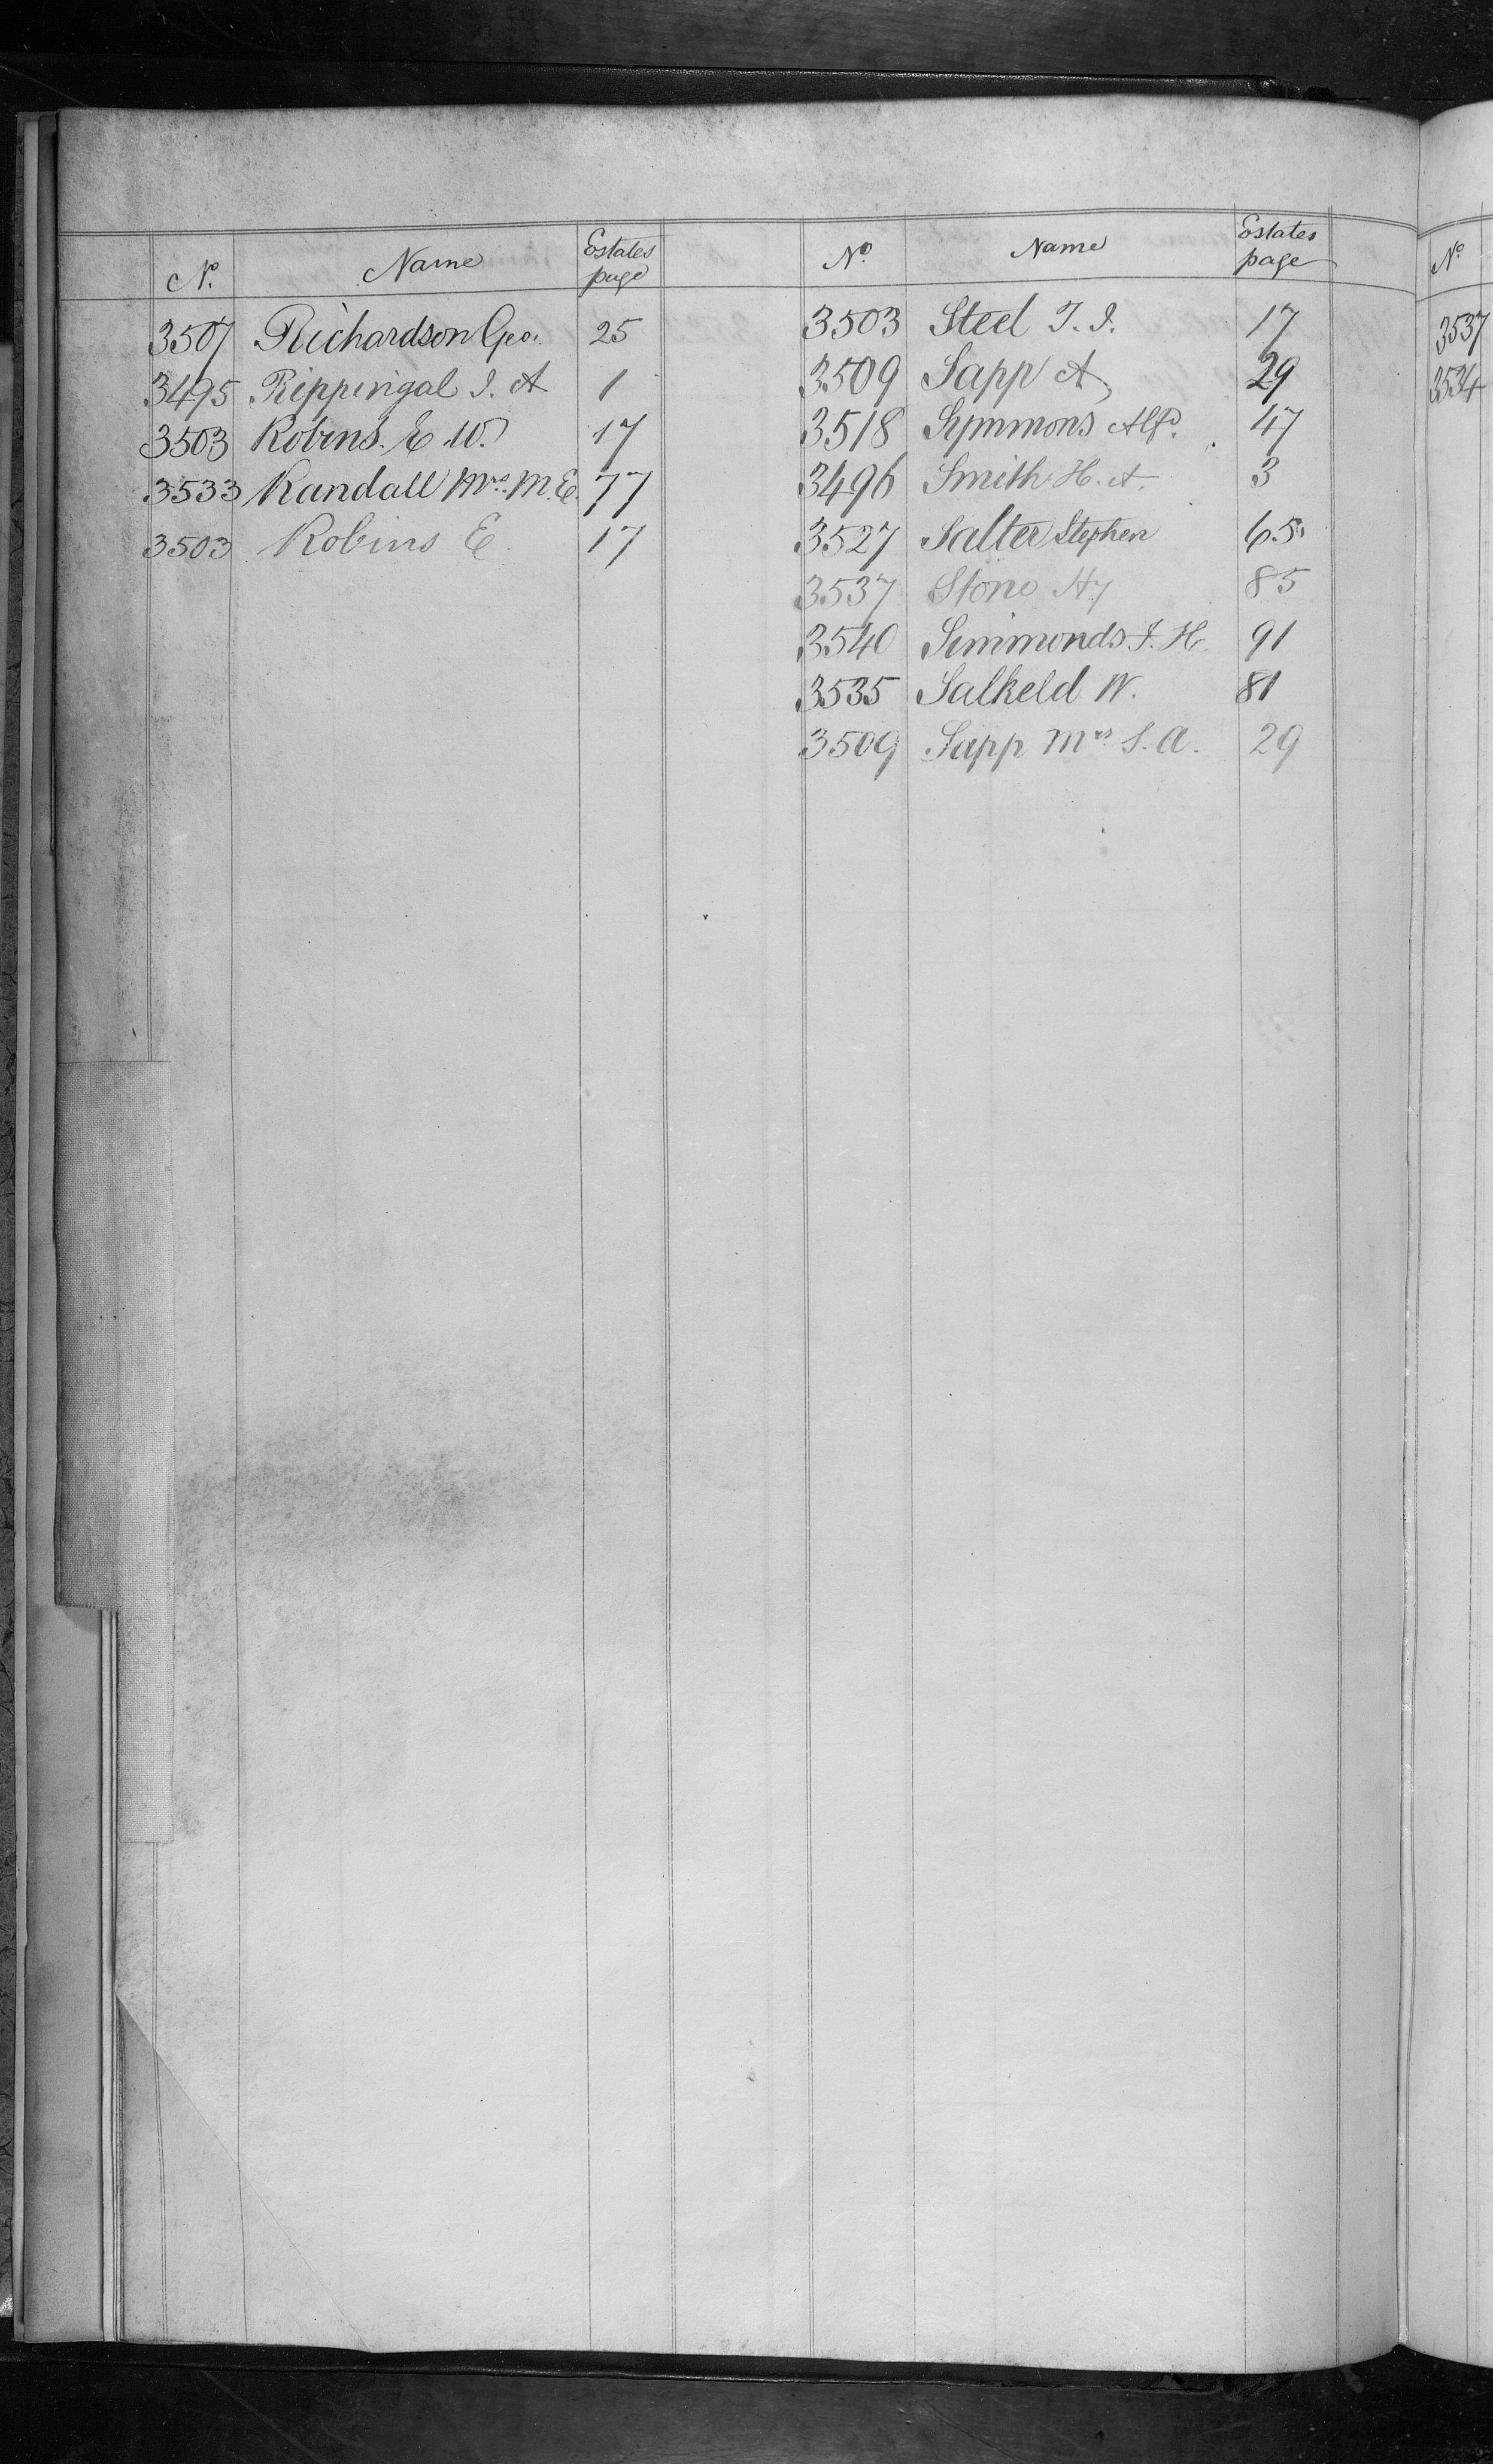 No. Name Estates page
3507 Richardson Geo. 25
3495 Rippingal J. A 1
3503 Robins. E. W. 17
3533 Randall Mrs. M. E. 77
3503 Robins E. 17
No. Name Estates page
3503 Steel T. J. 17
3509 Sapp A 29
3518 Symmons Alfd. 47
3496 Smith H. A. 3
3527 Salter Stephen 65
3537 Stone Hy 85
3540 Simmonds J. H. 91
3535 Salkeld W. 81
3509 Sapp Mrs S. A. 29
No
3537
3534